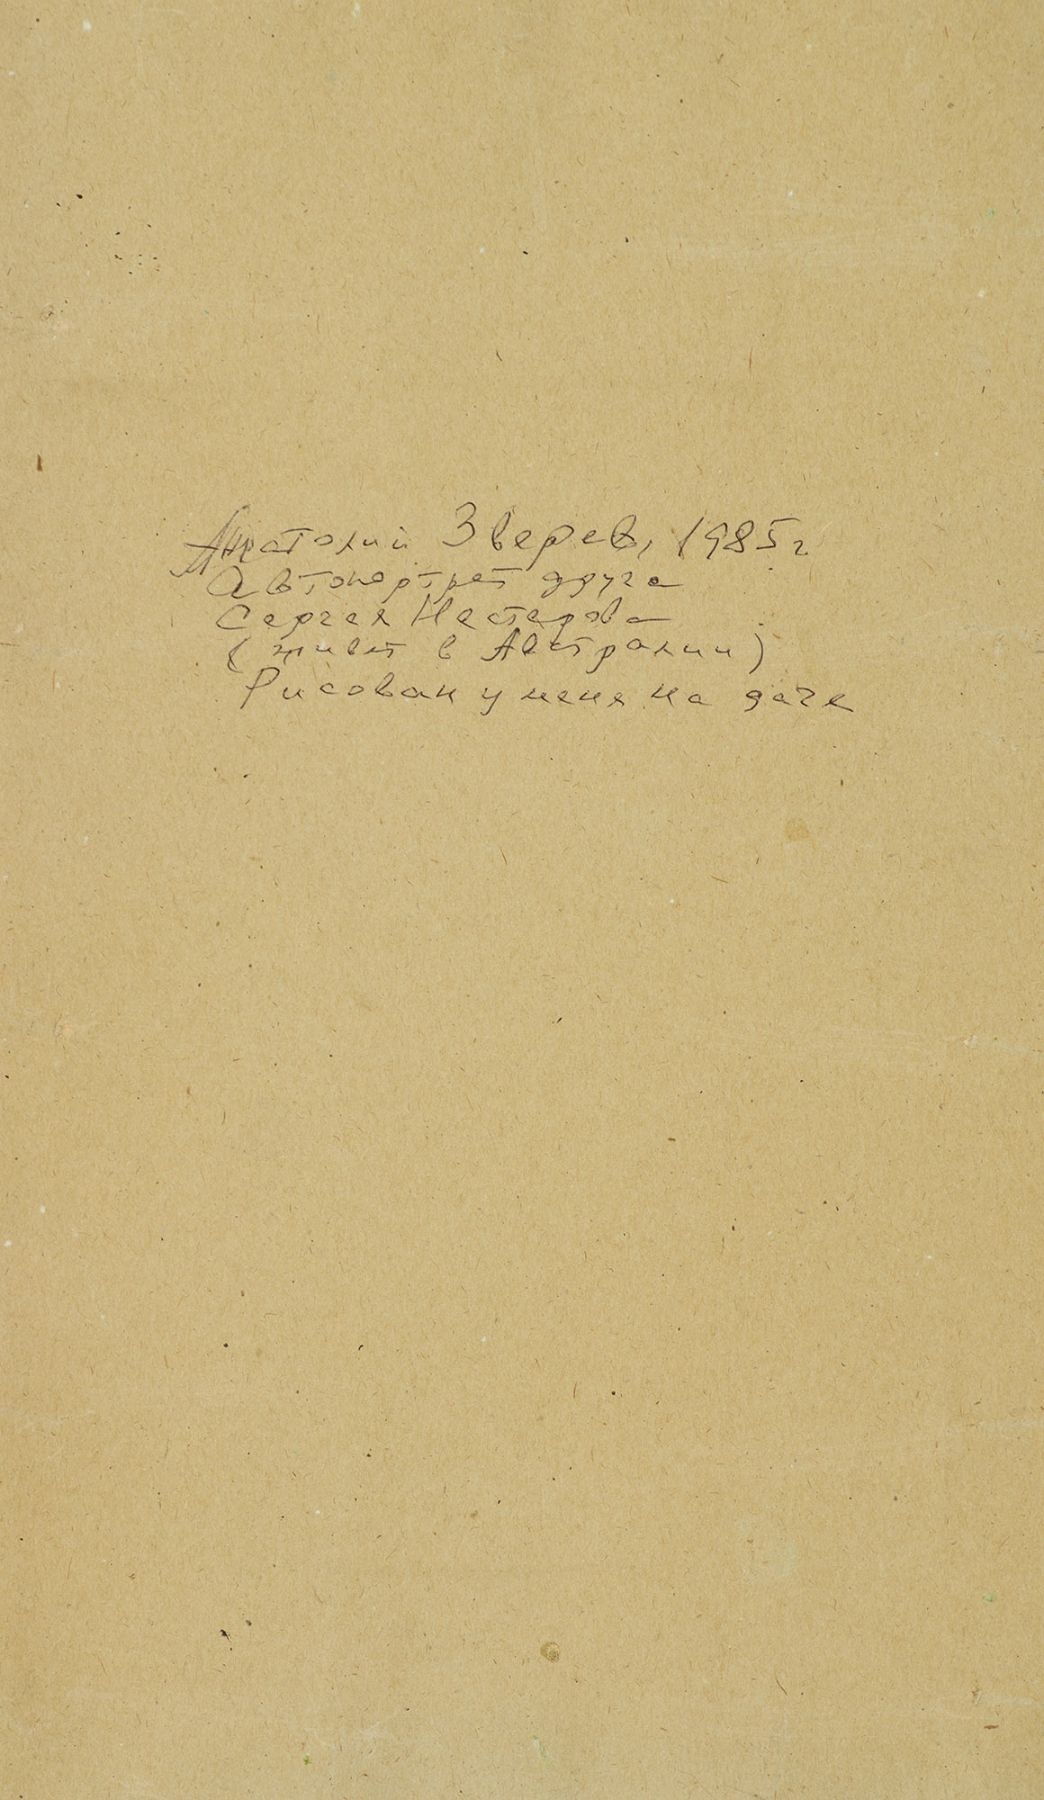 Анатолий Зверев, 1985 г
Автопортрет друга
Сергея Нестерова
(живет в Австралии)
Рисован у меня на даче